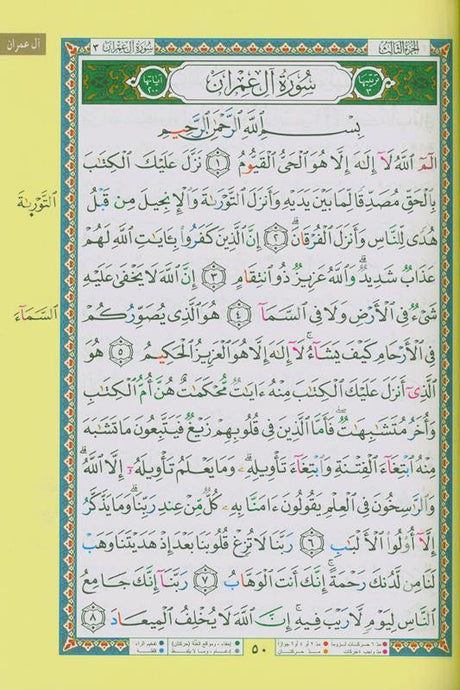 آل عمران
سُورَةُ آلِ عِمْرَان ٣
الجُزْءُ الثَّالِثُ
آيَاتُهَا ٢٠٠
سُورَةُ آلِ عِمْرَانَ
تَرْتِيبُهَا ٣
بِسْمِ اللَّهِ الرَّحْمَٰنِ الرَّحِيمِ
الٓمٓ اللَّهُ لَآ إِلَٰهَ إِلَّا هُوَ الْحَيُّ الْقَيُّومُ ١ نَزَّلَ عَلَيْكَ الْكِتَٰبَ
بِالْحَقِّ مُصَدِّقًا لِّمَا بَيْنَ يَدَيْهِ وَأَنزَلَ التَّوْرَىٰةَ وَالْإِنجِيلَ مِن قَبْلُ
هُدًى لِّلنَّاسِ وَأَنزَلَ الْفُرْقَانَ ٢ إِنَّ الَّذِينَ كَفَرُوا بِـَٔايَٰتِ اللَّهِ لَهُمْ
عَذَابٌ شَدِيدٌ وَاللَّهُ عَزِيزٌ ذُو انتِقَامٍ ٣ إِنَّ اللَّهَ لَا يَخْفَىٰ عَلَيْهِ
شَيْءٌ فِي الْأَرْضِ وَلَا فِي السَّمَآءِ ٤ هُوَ الَّذِي يُصَوِّرُكُمْ
فِي الْأَرْحَامِ كَيْفَ يَشَآءُ لَآ إِلَٰهَ إِلَّا هُوَ الْعَزِيزُ الْحَكِيمُ ٥ هُوَ
الَّذِيٓ أَنزَلَ عَلَيْكَ الْكِتَٰبَ مِنْهُ ءَايَٰتٌ مُّحْكَمَٰتٌ هُنَّ أُمُّ الْكِتَٰبِ
وَأُخَرُ مُتَشَٰبِهَٰتٌ فَأَمَّا الَّذِينَ فِي قُلُوبِهِمْ زَيْغٌ فَيَتَّبِعُونَ مَا تَشَٰبَهَ
مِنْهُ ابْتِغَآءَ الْفِتْنَةِ وَابْتِغَآءَ تَأْوِيلِهِ وَمَا يَعْلَمُ تَأْوِيلَهُۥٓ إِلَّا اللَّهُ
وَالرَّٰسِخُونَ فِي الْعِلْمِ يَقُولُونَ ءَامَنَّا بِهِ كُلٌّ مِّنْ عِندِ رَبِّنَا وَمَا يَذَّكَّرُ
إِلَّآ أُولُوا الْأَلْبَٰبِ ٦ رَبَّنَا لَا تُزِغْ قُلُوبَنَا بَعْدَ إِذْ هَدَيْتَنَا وَهَبْ
لَنَا مِن لَّدُنكَ رَحْمَةً إِنَّكَ أَنتَ الْوَهَّابُ ٧ رَبَّنَآ إِنَّكَ جَامِعُ
النَّاسِ لِيَوْمٍ لَّا رَيْبَ فِيهِ إِنَّ اللَّهَ لَا يُخْلِفُ الْمِيعَادَ ٨
التَّوْرَىٰةَ
السَّمَآءِ
٥٠